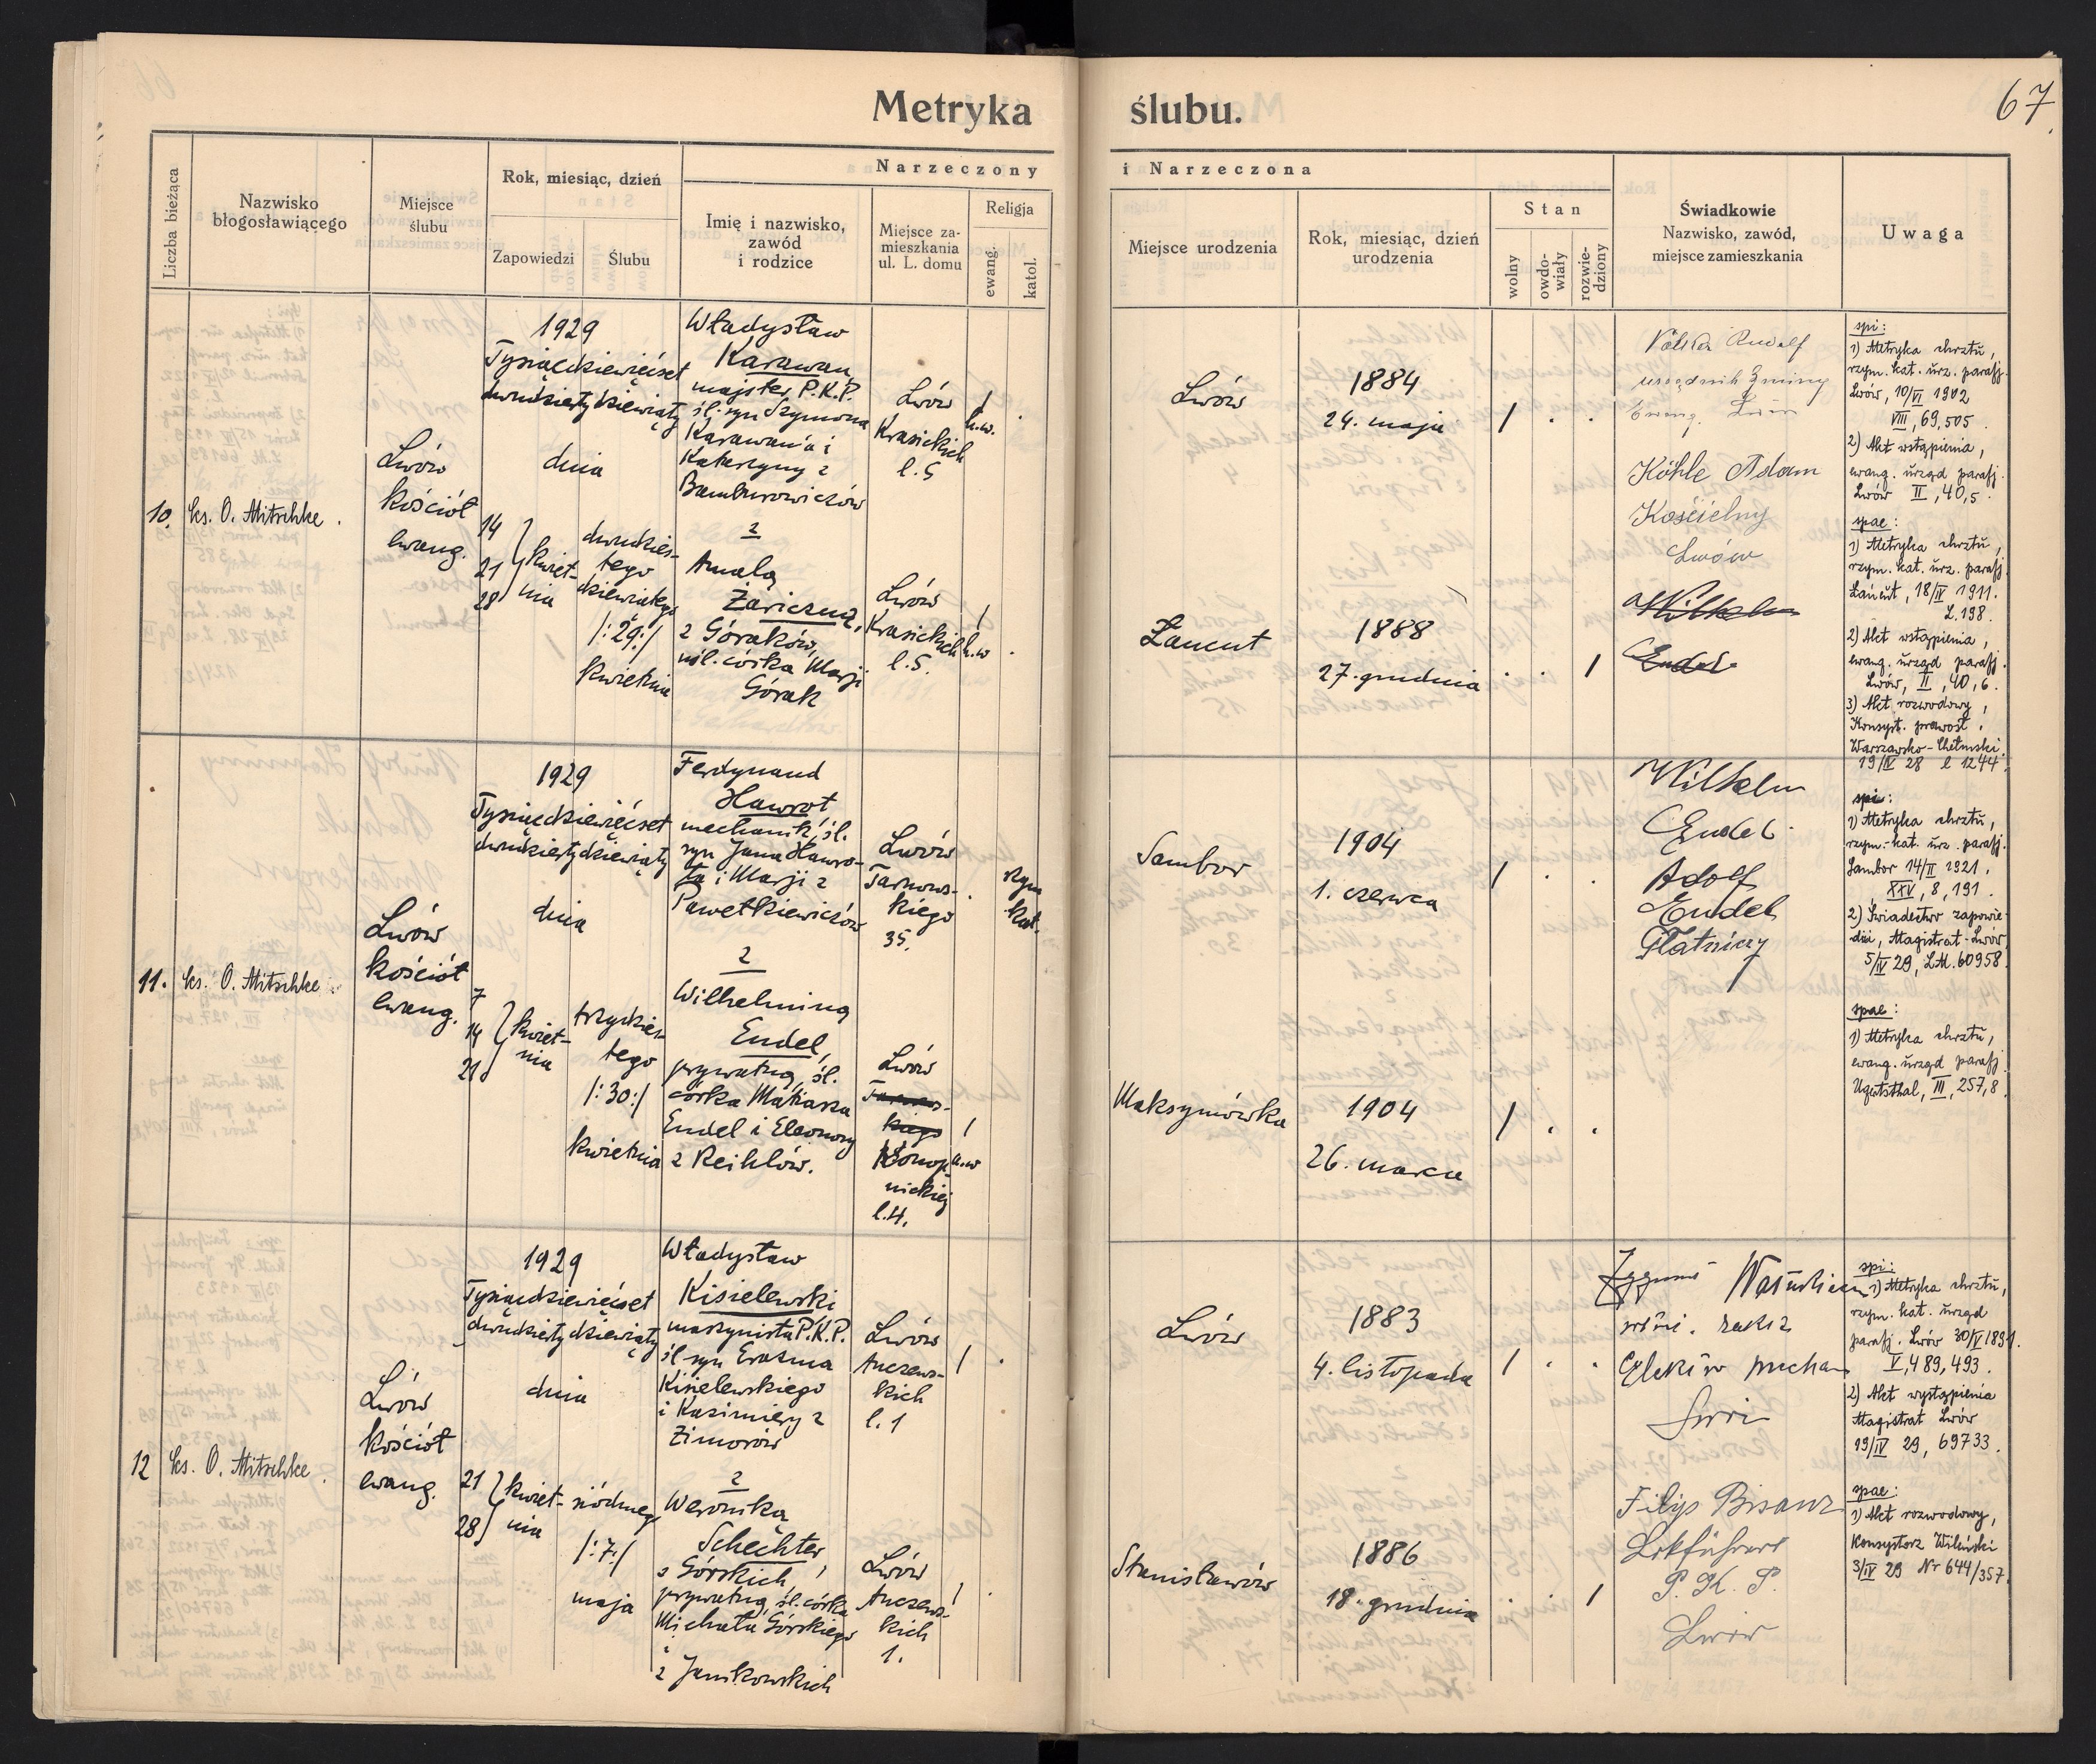 Metryka ślubu.
67.
Liczba bieżąca
Nazwisko
błogosławiącego
Miejsce
ślubu
Rok, miesiąc, dzień
Zapowiedzi
Ślubu
Narzeczony
Imię i nazwisko,
zawód
i rodzice
Miejsce za-
mieszkania
ul. L. domu
Religja
ewang.
katol.
i Narzeczona
Miejsce urodzenia
Rok, miesiąc, dzień
urodzenia
Stan
wolny
owdo-
wiały
rozwie-
dziony
Świadkowie
Nazwisko, zawód,
miejsce zamieszkania
Uwaga
10.
ks. O. Mitschke.
Lwów
kościół
ewang.
1929
Tysiącdziewięćset
dwudziestydziewiąty
dnia
14
21
28
kwiet-
nia
dwudzies-
tego
dziewiątego
/:29:/
kwietnia
Władysław
Karawan
majster P.K.P.
śl. syn Szymona
Karawan'a i
Katarzyny z
Bamburowiczów
z
Amalą
Zariczną,
z Góraków,
nśl. córka Marji
Górak
Lwów
Krasickich
l. 5
/
h.w.
Lwów
Krasickich
l. 5.
/
h.w
Lwów
1884
24. maja
/ . .
Łańcut
1888
27. grudnia
. . /
Rudolf
urzędnik Gminy
Ewang. Lwów
Köhle Adam
Kościelny
Lwów
Wilhelm
Endel
spi:
1) Metryka chrztu,
rzym. kat. urz. parafj.
Lwów, 10/VI 1902,
VIII, 69, 505.
2) Akt wstąpienia,
ewang. urząd parafj.
Lwów II, 40, 5.
spae:
1) Metryka chrztu,
rzym. kat. urz. parafj.
Łańcut, 18/IV 1911.
L. 198.
2) Akt wstąpienia,
ewang. urząd parafj.
Lwów, II, 40, 6.
3) Akt rozwodowy,
Konsyst. prawosł.
Warszawsko-Chełmski.
19/IV 28 l 1244.
11.
ks. O. Mitschke.
Lwów
kościół
ewang.
1929
Tysiącdziewięćset
dwudziestydziewiąty
dnia
7
14
21
kwiet-
nia
trzydzies-
tego
/:30:/
kwietnia
Ferdynand
Hawrot
mechanik, śl.
syn Jana Hawro-
ta i Marji z
Pawełkiewiczów
z
Wilhelminą
Endel,
prywatną, śl.
córka Matiasza
Endel i Eleonory
z Reihlów.
Lwów
Tarnows-
kiego
35.
rzym
kat.
Lwów
Tarnows-
kiego
Konop-
nickiej
l. 4.
/
h.w
Sambor
1904
1. czerwca
/ . .
Maksymówka
1904
26. marca
/ . .
Wilhelm
Endel
Adolf
Endel
spi:
1) Metryka chrztu,
rzym.-kat. urz. parafj.
Sambor 14/II 1921,
XXV, 8, 191.
2) Świadectwo zapowie-
dzi, Magistrat-Lwów,
5/IV 29, L.M. 60958.
spae:
1) Metryka chrztu,
ewang. urząd parafj.
Ugartsthal, III, 257, 8.
12
ks. O. Mitschke.
Lwów
kościół
ewang.
1929
Tysiącdziewięćset
dwudziestydziewiąty
dnia
21
28
kwiet-
nia
siódmego
/:7:/
maja
Władysław
Kisielewski
maszynista P.K.P.
śl syn Erazma
Kisielewskiego
i Kazimiery z
Zimorów
z
Weroniką
Schechter,
z Górskich
prywatną, śl. córka
Michała Górskiego
i
z Jamkowskich
Lwów
Anczews-
kich
l. 1
/ .
Lwów
Anczews-
kich
1.
/ .
Lwów
1883
4. listopada
/ . .
Stanisławów
1886
18. grudnia
. . /
Lwów
Filip Bisanz
Lokführer
P. K. P.
Lwów
spi:
1) Metryka chrztu,
rzym. kat. urząd
parafj. Lwów 30/V 1891.
V, 489, 493.
2) Akt wystąpienia
Magistrat Lwów
19/IV 29, 69733.
spae:
1) Akt rozwodowy,
Konsystorz Wileński
3/IV 29 Nr 644/357.